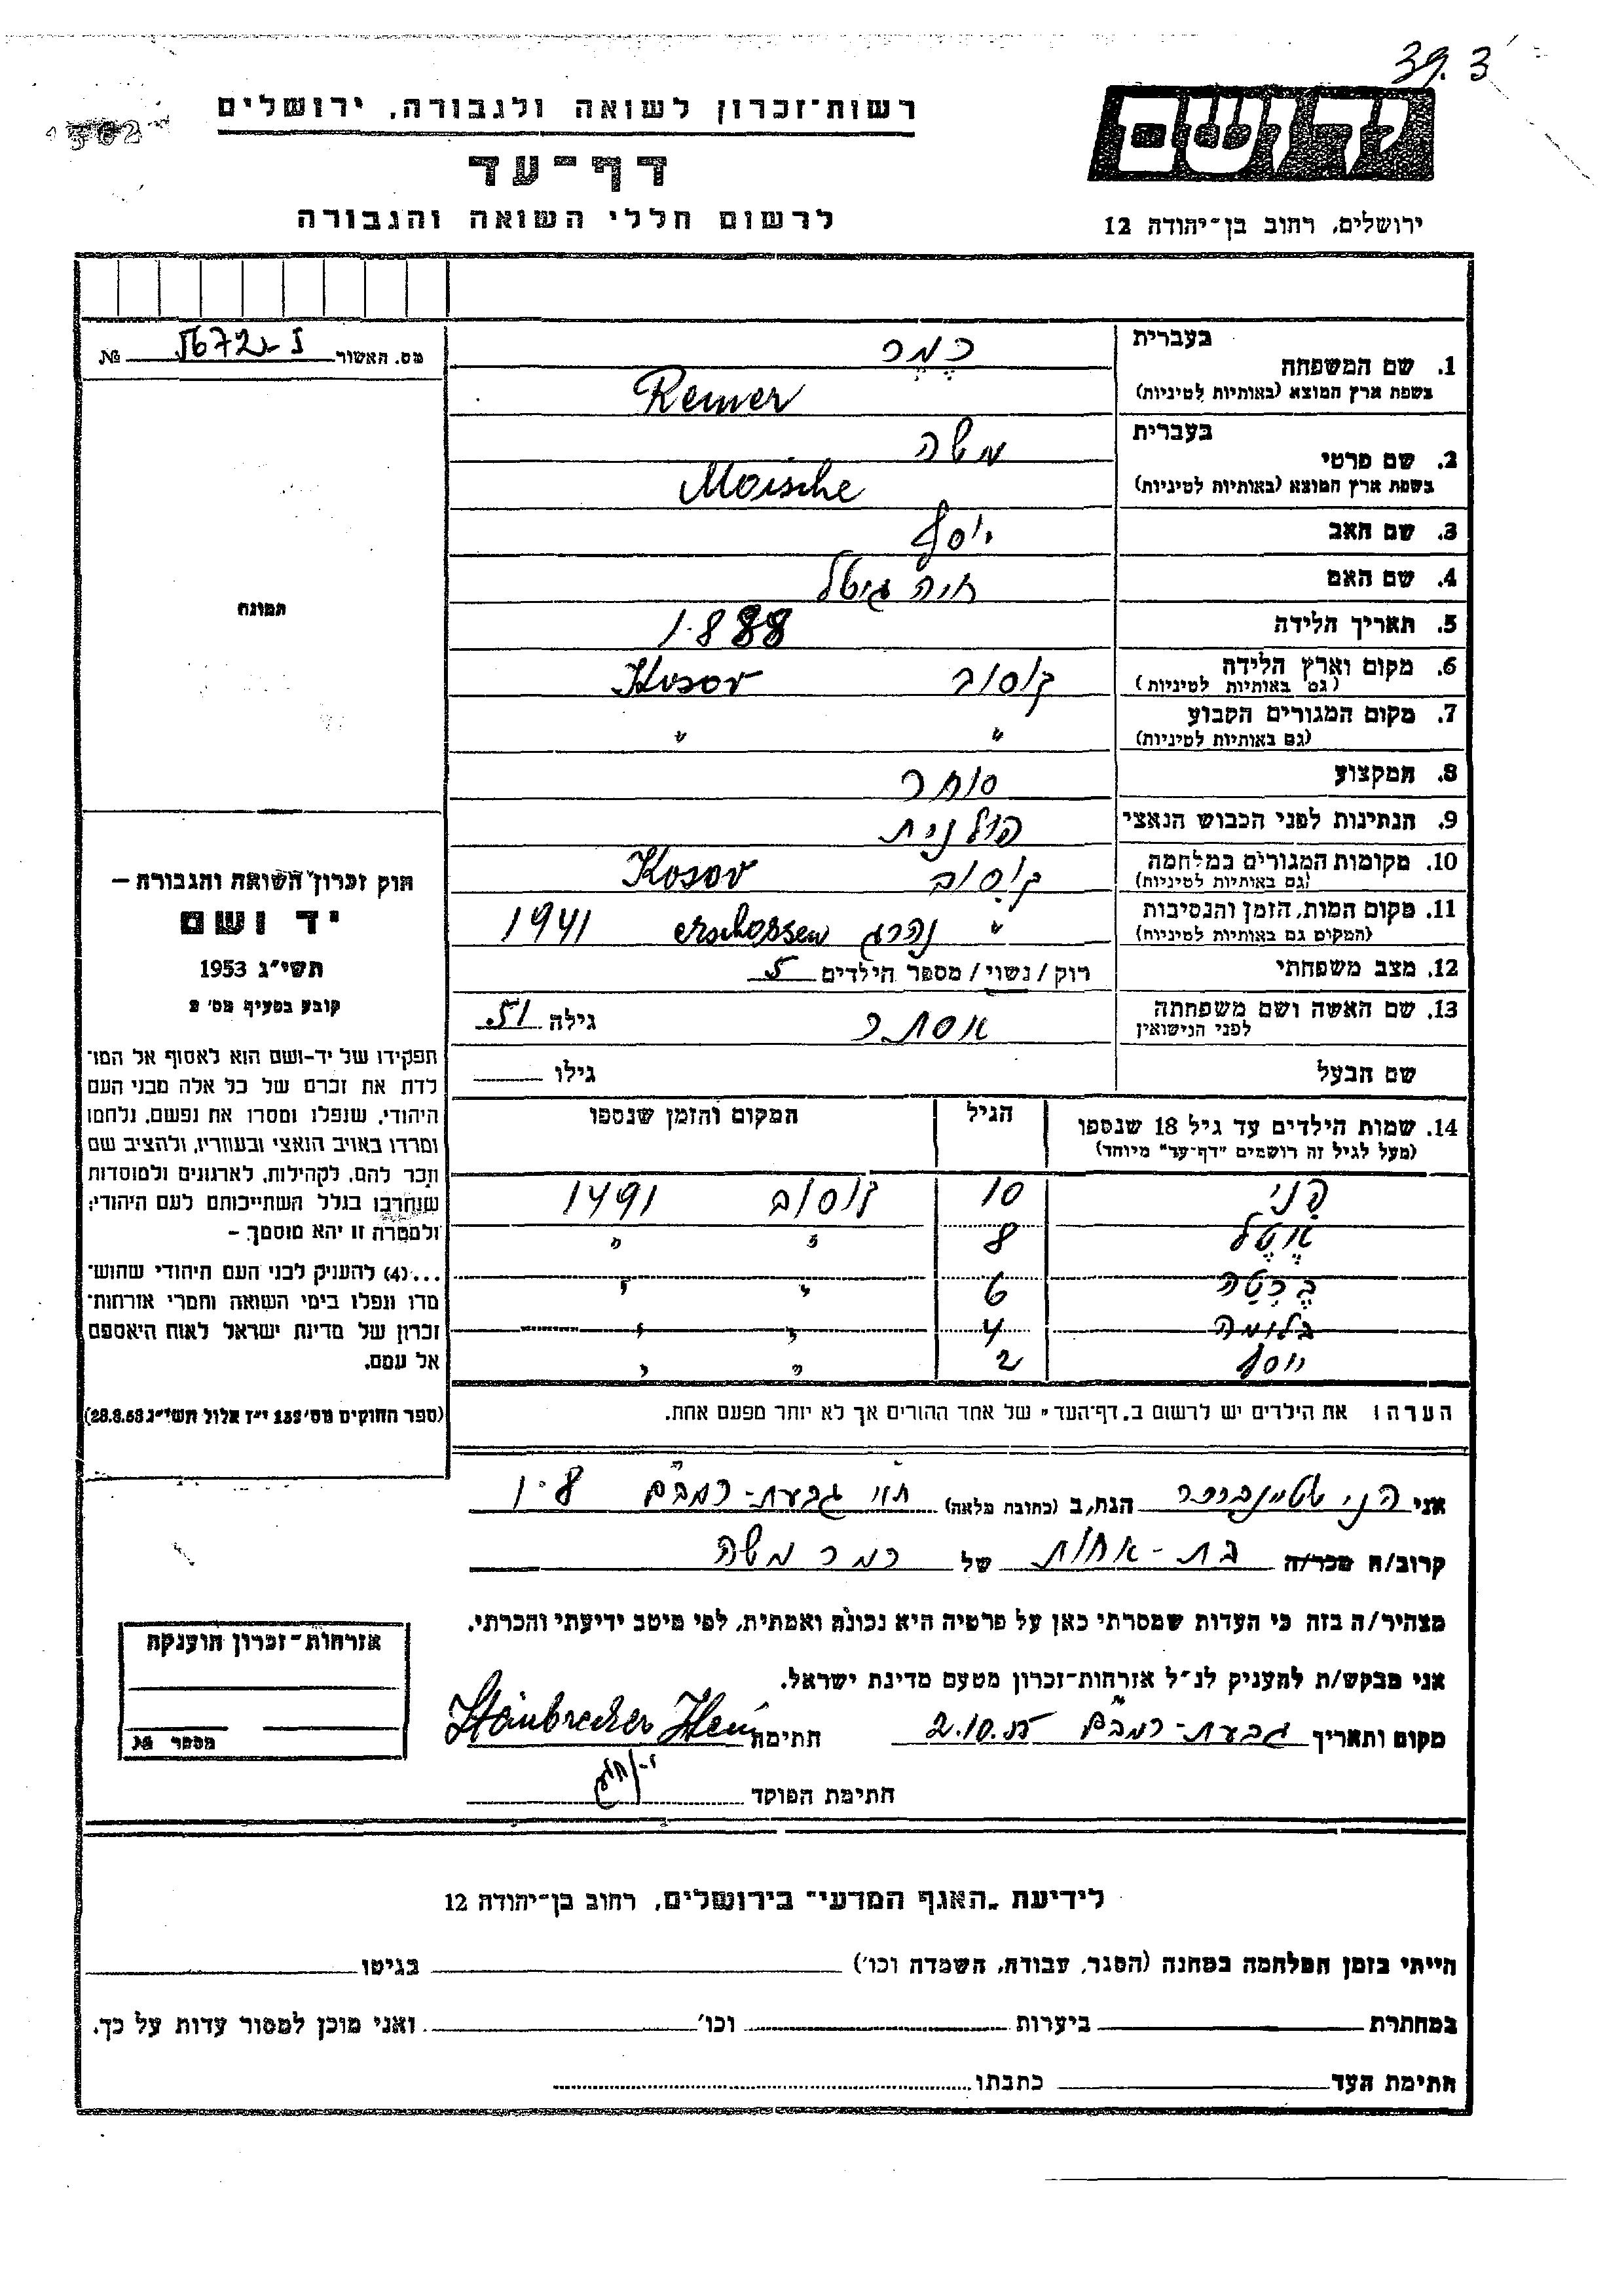 39.3
רשות־זכרון לשואה ולגבורה, ירושלים
דף־עד
לרשום חללי השואה והגבורה
יד ושם
ירושלים, רחוב בן־יהודה 12
מס. האשור №
בעברית רמר
1. שם המשפחה
בשפת ארץ המוצא (באותיות לטיניות) Remer
בעברית משה
2. שם פרטי
בשפת ארץ המוצא (באותיות לטיניות) Moische
3. שם האב יוסף
4. שם האם חיה גיטל
5. תאריך הלידה 1.888
6. מקום וארץ הלידה קוסוב Kosov
(גם באותיות לטיניות)
7. מקום המגורים הקבוע " "
(גם באותיות לטיניות)
8. המקצוע סוחר
9. הנתינות לפני הכבוש הנאצי פולנית
10. מקומות המגורים במלחמה קוסוב Kosov
(גם באותיות לטיניות)
11. מקום המות, הזמן והנסיבות " נהרג erschossen 1941
(המקום גם באותיות לטיניות)
12. מצב משפחתי רוק / נשוי / מספר הילדים 5
13. שם האשה ושם משפחתה אסתר גילה 51
לפני הנישואין
שם הבעל גילו
14. שמות הילדים עד גיל 18 שנספו הגיל המקום והזמן שנספו
(מעל לגיל זה רושמים "דף־עד" מיוחד)
פני 10 קוסוב 1491
אטל 8 " "
ברטה 6 " "
בלומה 4 " "
יוסף 2 " "
הערה: את הילדים יש לרשום ב„דף־העד" של אחד ההורים אך לא יותר מפעם אחת.
תמונה
חוק זכרון השואה והגבורה —
יד ושם
תשי"ג 1953
קובע בסעיף מס' 2
תפקידו של יד־ושם הוא לאסוף אל המו־
לדת את זכרם של כל אלה מבני העם
היהודי, שנפלו ומסרו את נפשם, נלחמו
ומרדו באויב הנאצי ובעוזריו, ולהציב שם
וזכר להם, לקהילות, לארגונים ולמוסדות
שנחרבו בגלל השתייכותם לעם היהודי;
ולמטרה זו יהא מוסמך —
...(4) להעניק לבני העם היהודי שהוש־
מדו ונפלו בימי השואה והמרי אזרחות־
זכרון של מדינת ישראל לאות היאספם
אל עמם.
(ספר החוקים מס' 132 י"ז אלול תשי"ג 28.8.53)
אני הני שטיינברכר הגת,ב (כתובת מלאה) גבעת־רמב"ם 1.8
קרוב/ה מכר/ה בת־אחות של רמר משה
מצהיר/ה בזה כי העדות שמסרתי כאן על פרטיה היא נכונה ואמתית, לפי מיטב ידיעתי והכרתי.
אני מבקש/ת להעניק לנ"ל אזרחות־זכרון מטעם מדינת ישראל.
מקום ותאריך גבעת־רמב"ם 2.10.55 חתימה Steinbrecher Heni
חתימת הפוקד
אזרחות־זכרון הוענקה
מספר №
לידיעת „האגף המדעי" בירושלים, רחוב בן־יהודה 12
הייתי בזמן המלחמה במחנה (הסגר, עבודה, השמדה וכו') בגיטו
במחתרת ביערות וכו' ואני מוכן למסור עדות על כך.
חתימת העד כתבתו